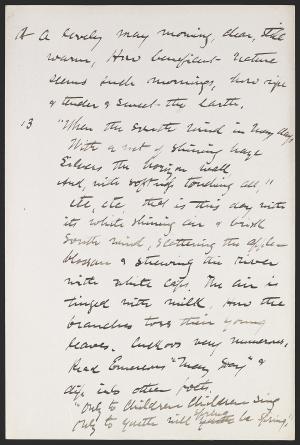 12 A lovely May morning, clear, still
warm, How beneficent Nature
seems such mornings, how ripe
& tender & sweet the earth.
13 "When the south wind in May days,
With a net of shining haze
Silvers the horizon wall,
And, with softness touching all,"
etc, etc that is this day with
its white shining air & brisk
south wind, scattering the apple-
blossom & strewing the river
with white caps. The air is
tinged with milk, How the
branches toss their young
leaves. Cuckoos very numerous,
Read Emersons "May Day" &
dip into other poets.
"Only to children children sing
Only to youth will spring be spring,"